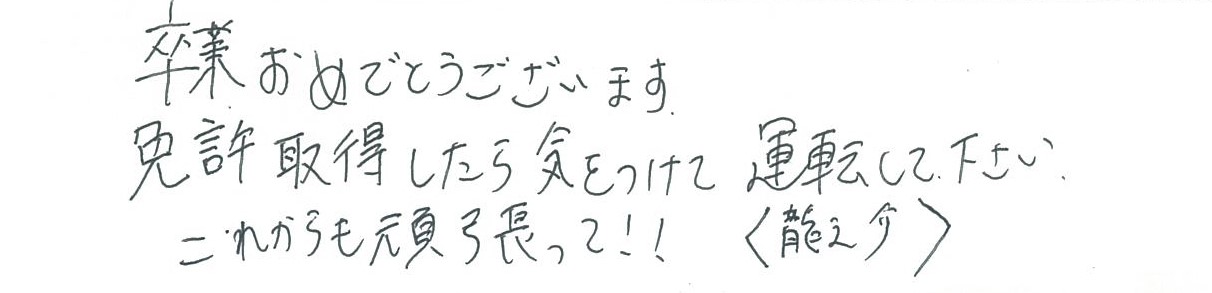 卒業おめでとうございます.
免許取得したら気をつけて 運転して下さい.
これからも頑張って!! 〈龍之介〉